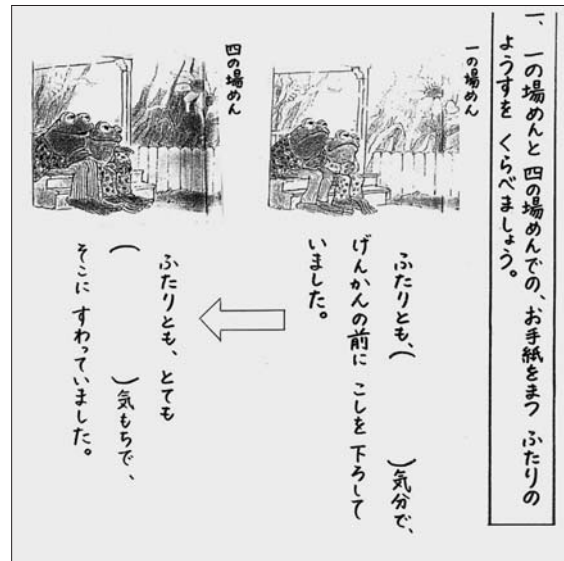 一、一の場めんと 四の場めんでの、お手紙をまつ ふたりの
ようすを くらべましょう。
一の場めん
ふたりとも、（　　　　）気分で、
げんかんの前に こしを 下ろして
いました。
四の場めん
ふたりとも、とても
（　　　　）気もちで、
そこに すわっていました。